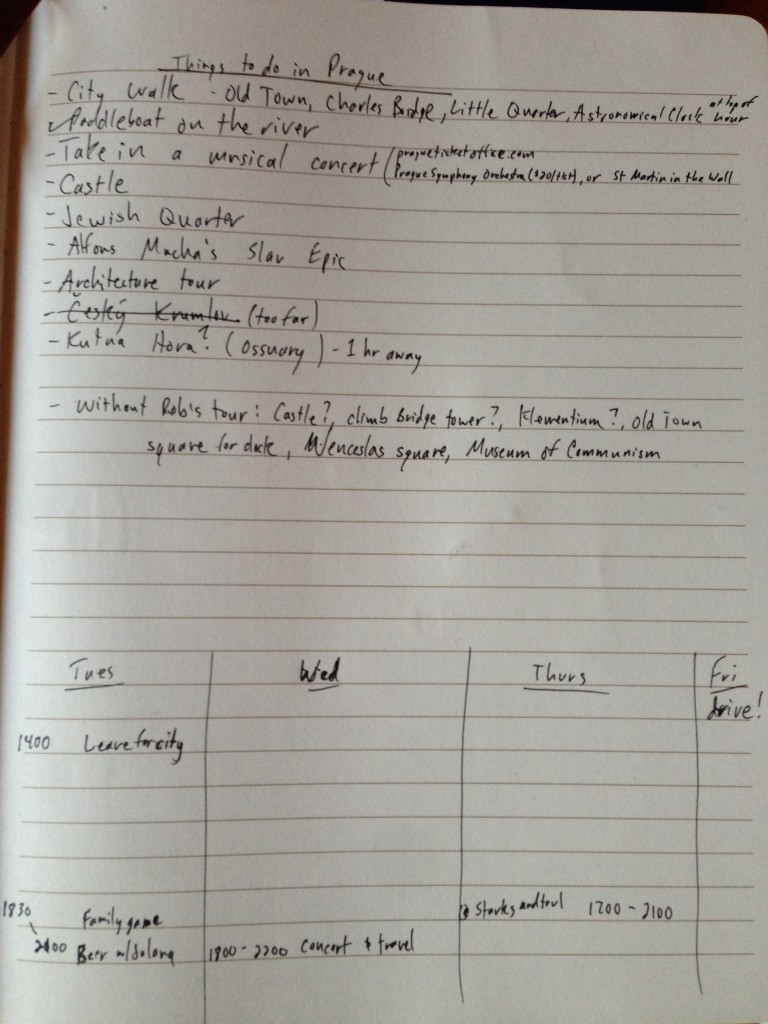 Things to do in Prague
- City Walk - Old Town, Charles Bridge, Little Quarter, Astronomical Clock at top of hour
- Paddleboat on the river
- Take in a musical concert (pragueticketoffice.com
Prague Symphony Orchestra ($20/tkt), or St Martin in the Wall
- Castle
- Jewish Quarter
- Alfons Mucha's Slav Epic
- Architecture tour
- Český Krumlov (too far)
- Kutna Hora? (Ossuary) - 1 hr away
- Without Rob's tour: Castle?, climb Bridge tower?, Klementium?, Old Town
square for duck, Wenceslas square, Museum of Communism
Tues Wed Thurs Fri
drive!
1400 Leave for city
1830 Family game
@ Starks and 1700 - 2100
2000 Beer w/
1800 - 2200 Concert & travel